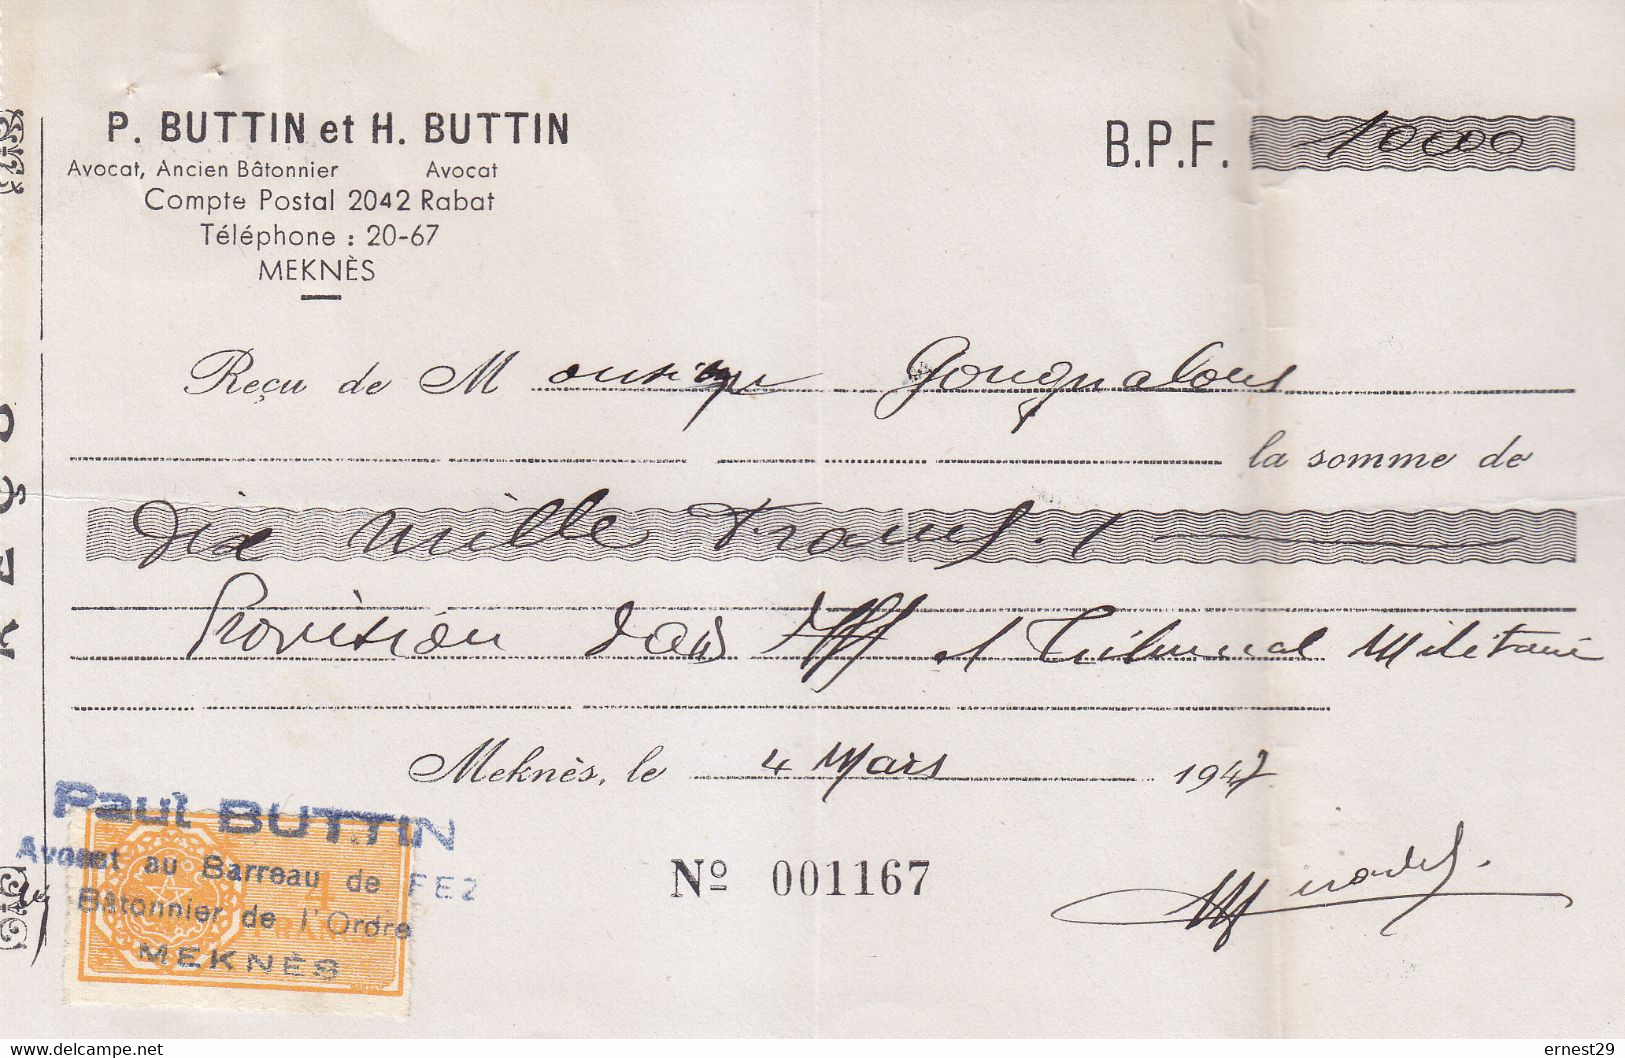 P. BUTTIN et H. BUTTIN
Avocat, Ancien Bâtonnier Avocat
Compte Postal 2042 Rabat
Téléphone : 20-67
MEKNÈS
B.P.F. 10000
Reçu de Monsieur
la somme de
Dix mille Francs. /
Provision dans Aff et Tribunal Militaire
Meknès, le 4 Mars 1947
Nº 001167
Paul BUTTIN
Avocat au Barreau de FEZ
Bâtonnier de l'Ordre
MEKNÈS
4
FRANCS
REÇU
delcampe.net
ernest29